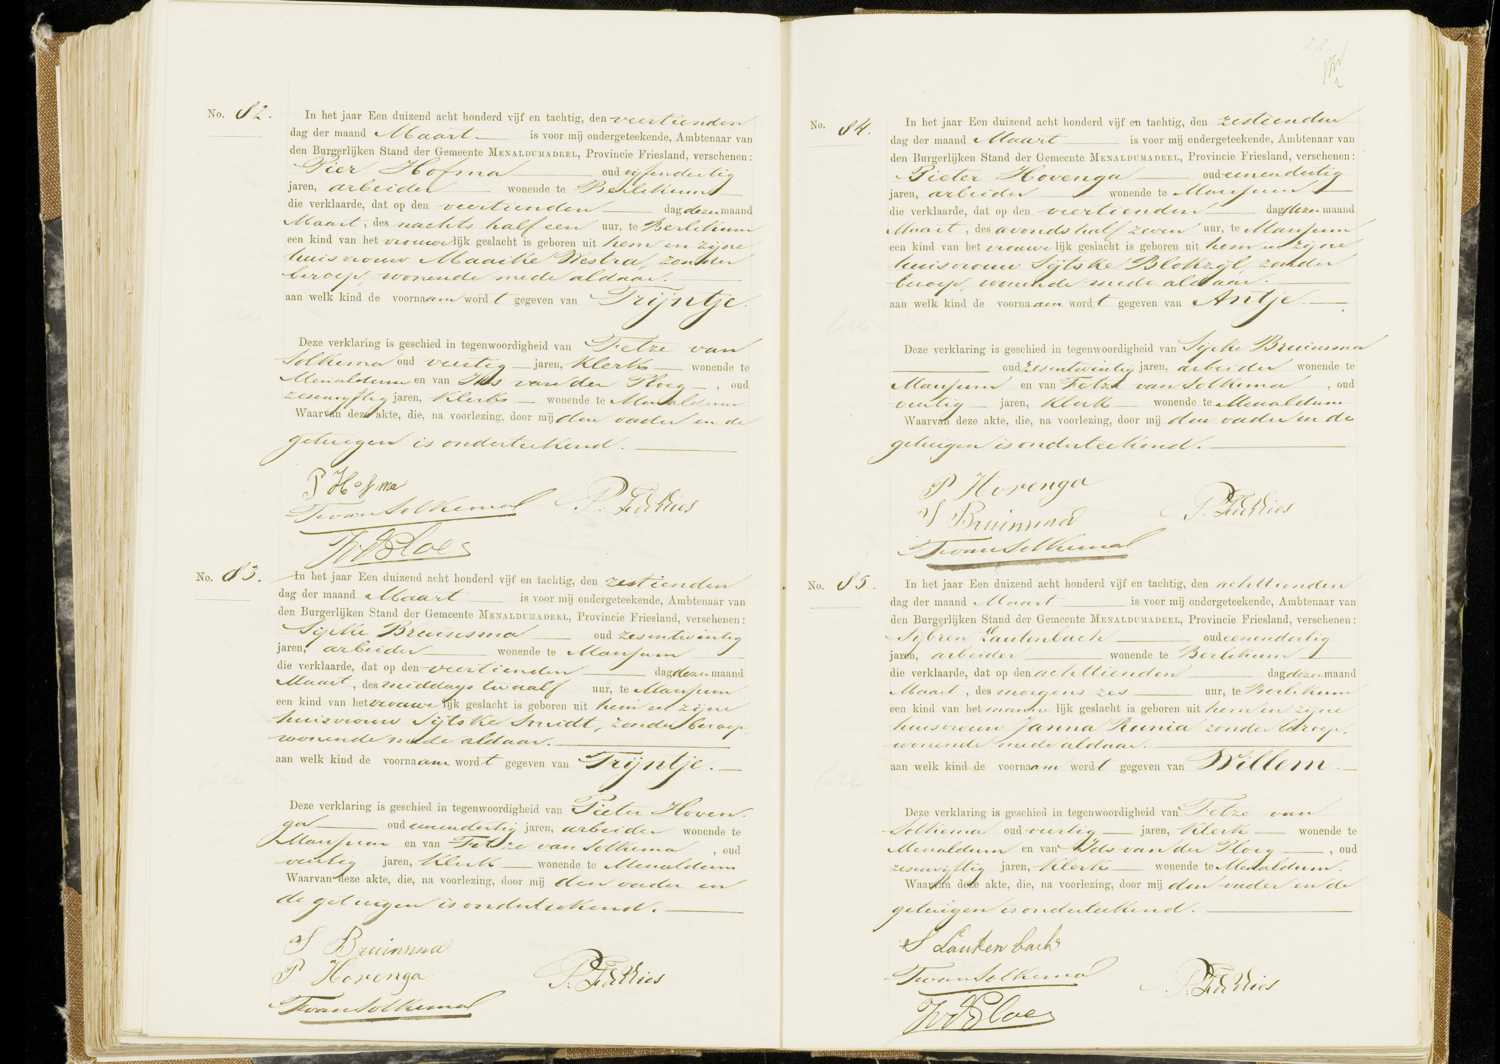 No. 82.
In het jaar Een duizend acht honderd vijf en tachtig, den veertienden
dag der maand Maart is voor mij ondergeteekende, Ambtenaar van
den Burgerlijken Stand der Gemeente MENALDUMADEEL, Provincie Friesland, verschenen:
Pier Hofma oud vijfendertig
jaren, arbeider wonende te Berlikum
die verklaarde, dat op den veertienden dag dezer maand
Maart, des nachts half een uur, te Berlikum
een kind van het vrouwelijk geslacht is geboren uit hem en zijne
huisvrouw Maaike Westra, zonder
beroep, wonende mede aldaar.
aan welk kind de voornaam wordt gegeven van Trijntje.
Deze verklaring is geschied in tegenwoordigheid van Fetze van
Solkema oud veertig jaren, Klerk wonende te
Menaldum en van IJds van der Ploeg, oud
zesenvijftig jaren, Klerk wonende te Menaldum
Waarvan deze akte, die, na voorlezing, door mij den vader en de
getuigen is onderteekend.
P Hofma
F van Solkema
No. 83.
In het jaar Een duizend acht honderd vijf en tachtig, den zestienden
dag der maand Maart is voor mij ondergeteekende, Ambtenaar van
den Burgerlijken Stand der Gemeente MENALDUMADEEL, Provincie Friesland, verschenen:
Sipke Bruinsma oud zesentwintig
jaren, arbeider wonende te Marssum
die verklaarde, dat op den veertienden dag dezer maand
Maart, des middags twaalf uur, te Marssum
een kind van het vrouwelijk geslacht is geboren uit hem en zijne
huisvrouw Sijtske Smidt, zonder beroep,
wonende mede aldaar.
aan welk kind de voornaam wordt gegeven van Trijntje.
Deze verklaring is geschied in tegenwoordigheid van Pieter Hoven-
ga oud eenendertig jaren, arbeider wonende te
Marssum en van Fetze van Solkema, oud
veertig jaren, Klerk wonende te Menaldum
Waarvan deze akte, die, na voorlezing, door mij den vader en
de getuigen is onderteekend.
S Bruinsma
P Hovenga
F van Solkema
No. 84.
In het jaar Een duizend acht honderd vijf en tachtig, den zestienden
dag der maand Maart is voor mij ondergeteekende, Ambtenaar van
den Burgerlijken Stand der Gemeente MENALDUMADEEL, Provincie Friesland, verschenen:
Pieter Hovenga oud eenendertig
jaren, arbeider wonende te Marssum
die verklaarde, dat op den veertienden dag dezer maand
Maart, des avonds half zeven uur, te Marssum
een kind van het vrouwelijk geslacht is geboren uit hem en zijne
huisvrouw Sijtske Blokzijl, zonder
beroep, wonende mede aldaar.
aan welk kind de voornaam wordt gegeven van Antje.
Deze verklaring is geschied in tegenwoordigheid van Sipke Bruinsma
oud zesentwintig jaren, arbeider wonende te
Marssum en van Fetze van Solkema, oud
veertig jaren, Klerk wonende te Menaldum
Waarvan deze akte, die, na voorlezing, door mij den vader en de
getuigen is onderteekend.
P Hovenga
S Bruinsma
F van Solkema
No. 85.
In het jaar Een duizend acht honderd vijf en tachtig, den achttienden
dag der maand Maart is voor mij ondergeteekende, Ambtenaar van
den Burgerlijken Stand der Gemeente MENALDUMADEEL, Provincie Friesland, verschenen:
Sijbren Lautenbach oud eenendertig
jaren, arbeider wonende te Berlikum
die verklaarde, dat op den achttienden dag dezer maand
Maart, des morgens zes uur, te Berlikum
een kind van het mannelijk geslacht is geboren uit hem en zijne
huisvrouw Janna Runia zonder beroep,
wonende mede aldaar.
aan welk kind de voornaam wordt gegeven van Willem.
Deze verklaring is geschied in tegenwoordigheid van Fetze van
Solkema oud veertig jaren, Klerk wonende te
Menaldum en van IJds van der Ploeg, oud
zesenvijftig jaren, Klerk wonende te Menaldum.
Waarvan deze akte, die, na voorlezing, door mij den vader en de
getuigen is onderteekend.
S Lautenbach
F van Solkema